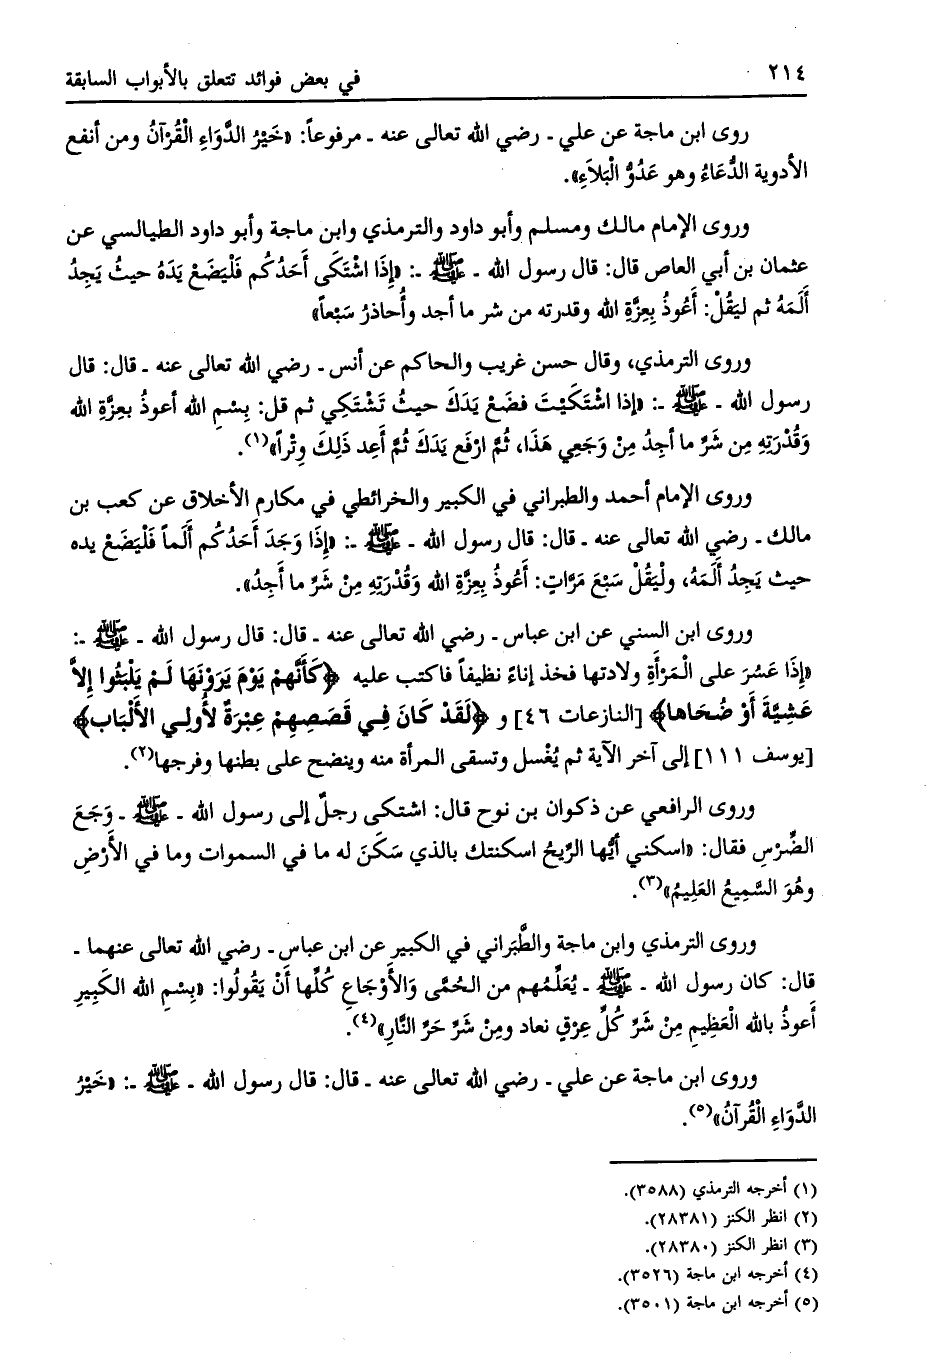 ٢١٤ في بعض فوائد تتعلق بالأبواب السابقة
روى ابن ماجة عن علي ـ رضي الله تعالى عنه ـ مرفوعاً: «خَيْرُ الدَّوَاءِ الْقُرْآنُ ومن أنفع
الأدوية الدُّعَاءُ وهو عَدُوُّ الْبَلَاءِ».
وروى الإمام مالك ومسلم وأبو داود والترمذي وابن ماجة وأبو داود الطيالسي عن
عثمان بن أبي العاص قال: قال رسول الله ـ ﷺ ـ: «إِذَا اشْتَكَى أَحَدُكُم فَلْيَضَعْ يَدَهُ حيثُ يَجِدُ
أَلَمَهُ ثم ليَقُلْ: أَعُوذُ بِعِزَّةِ الله وقدرته من شر ما أجد وأُحاذرُ سَبْعاً»
وروى الترمذي، وقال حسن غريب والحاكم عن أنس ـ رضي الله تعالى عنه ـ قال: قال
رسول الله ـ ﷺ ـ: «إذا اشْتَكَيْتَ فضَعْ يَدَكَ حيثُ تَشْتَكِي ثم قل: بِسْمِ الله أعوذُ بعِزَّةِ الله
وَقُدْرَتِهِ مِن شَرِّ ما أَجِدُ مِنْ وَجَعِي هَذَا، ثُمَّ ارْفَع يَدَكَ ثُمَّ أَعِد ذَلِكَ وِتْراً»(١).
وروى الإمام أحمد والطبراني في الكبير والخرائطي في مكارم الأخلاق عن كعب بن
مالك ـ رضي الله تعالى عنه ـ قال: قال رسول الله ـ ﷺ ـ: «إِذَا وَجَدَ أَحَدُكُم أَلَماً فَلْيَضَعْ يده
حيث يَجِدُ أَلَمَهُ، ولْيَقُلْ سَبْعَ مَرَّاتٍ: أَعُوذُ بِعِزَّةِ الله وَقُدْرَتِهِ مِنْ شَرِّ ما أَجِدُ».
وروى ابن السني عن ابن عباس ـ رضي الله تعالى عنه ـ قال: قال رسول الله ـ ﷺ ـ:
«إِذَا عَسُرَ على الْمَرْأَةِ ولادتها فخذ إناءً نظيفاً فاكتب عليه ﴿كَأَنَّهمْ يَوْمَ يَرَوْنَهَا لَمْ يَلْبَثُوا إِلاَّ
عَشِيَّةً أَوْ ضُحَاها﴾ [النازعات ٤٦] و ﴿لَقَدْ كَانَ فِي قَصَصِهِمْ عِبْرَةٌ لأُولِي الأَلْبَاب﴾
[يوسف ١١١] إلى آخر الآية ثم يُغْسل وتسقى المرأة منه وينضح على بطنها وفرجها(٢).
وروى الرافعي عن ذكوان بن نوح قال: اشتكى رجلٌ إلى رسول الله ـ ﷺ ـ وَجَعَ
الضِّرْسِ فقال: «اسكني أيُّها الرِّيحُ اسكنتك بالذي سَكَنَ له ما في السموات وما في الأَرْضِ
وهُوَ السَّمِيعُ العَلِيمُ»(٣).
وروى الترمذي وابن ماجة والطَّبَراني في الكبير عن ابن عباس ـ رضي الله تعالى عنهما ـ
قال: كان رسول الله ـ ﷺ ـ يُعَلِّمُهم من الحُمَّى وَالأَوْجَاعِ كُلِّها أَنْ يَقُولُوا: «بِسْمِ الله الكَبِيرِ
أعوذُ بالله الْعَظِيمِ مِنْ شَرِّ كُلِّ عِرْقٍ نعاد ومِنْ شَرِّ حَرِّ النَّارِ»(٤).
وروى ابن ماجة عن علي ـ رضي الله تعالى عنه ـ قال: قال رسول الله ـ ﷺ ـ: «خَيْرُ
الدَّوَاءِ الْقُرآنُ»(٥).
(١) أخرجه الترمذي (٣٥٨٨).
(٢) انظر الكنز (٢٨٣٨١).
(٣) انظر الكنز (٢٨٣٨٠).
(٤) أخرجه ابن ماجة (٣٥٢٦).
(٥) أخرجه ابن ماجة (٣٥٠١).